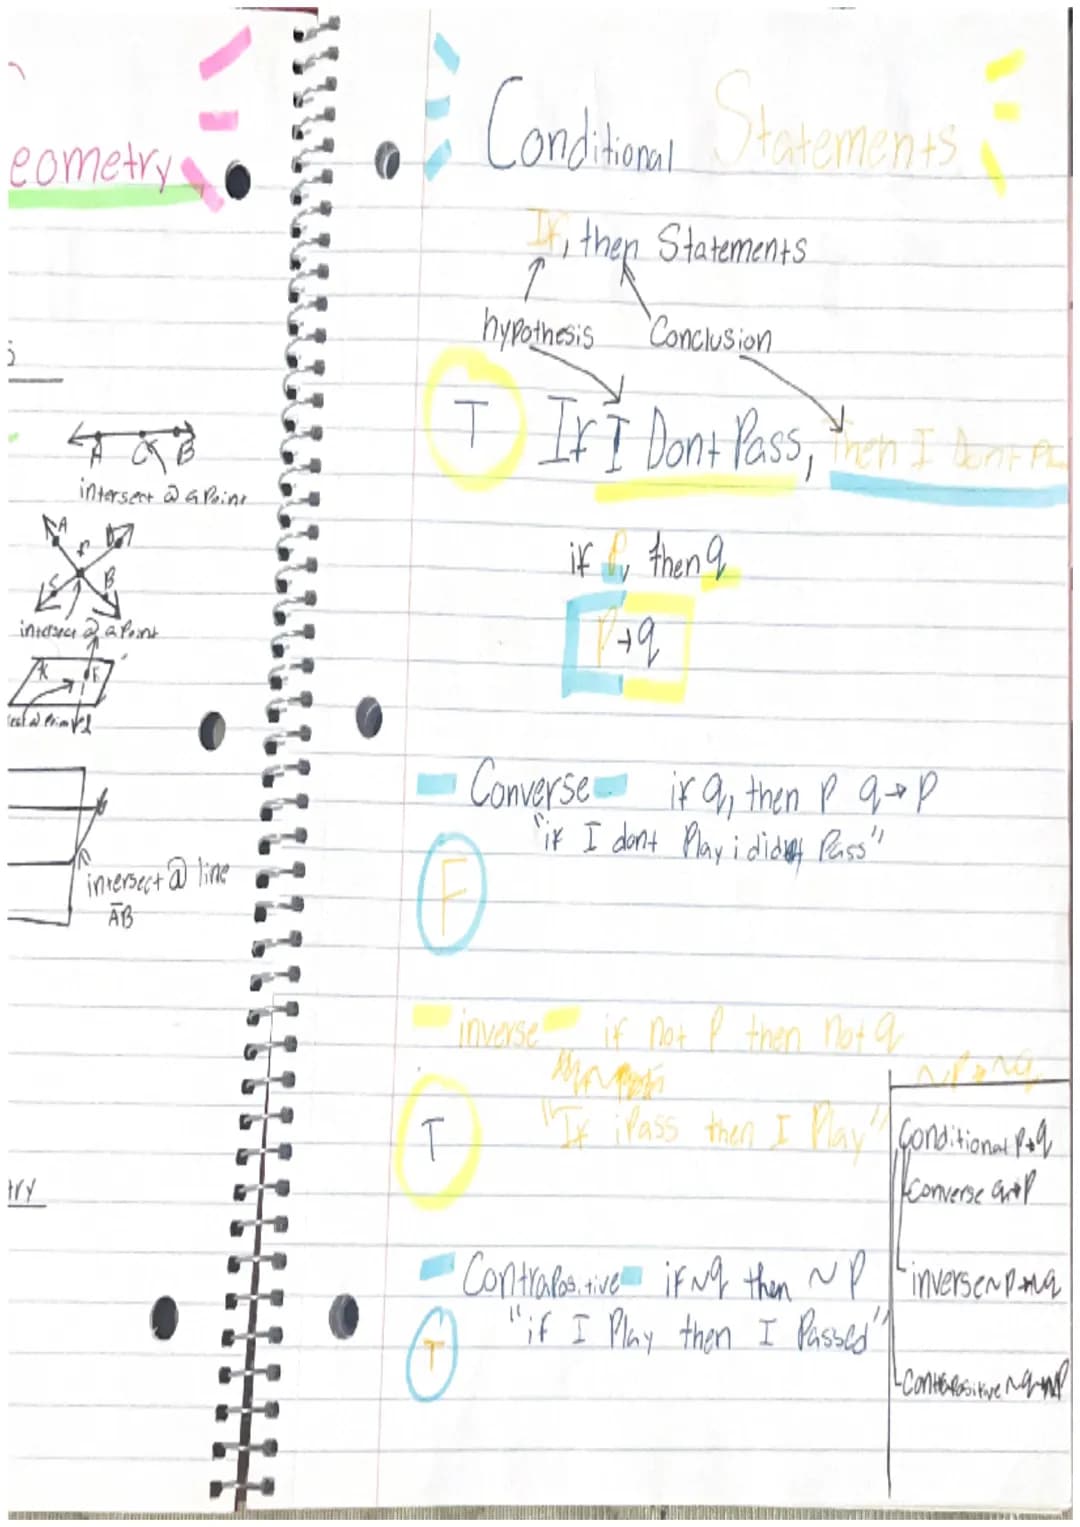 eometry
A C B
intersect @ a Point
A D
C B
intersect @ a Point
intersect @ line
AB
try
Conditional Statements
If, then Statements
hypothesis Conclusion
T If I Dont Pass, Then I Dont
if P, then q
P→q
Converse if q, then P q→P
"if I dont Play i didnt Pass"
F
inverse if not P then not q
~P→~q
T "If i Pass then I Play"
Conditional P→q
Converse q→P
inverse ~P→~q
Contrapositive ~q→~P
Contrapositive if ~q then ~P
"if I Play then I Passed"
T